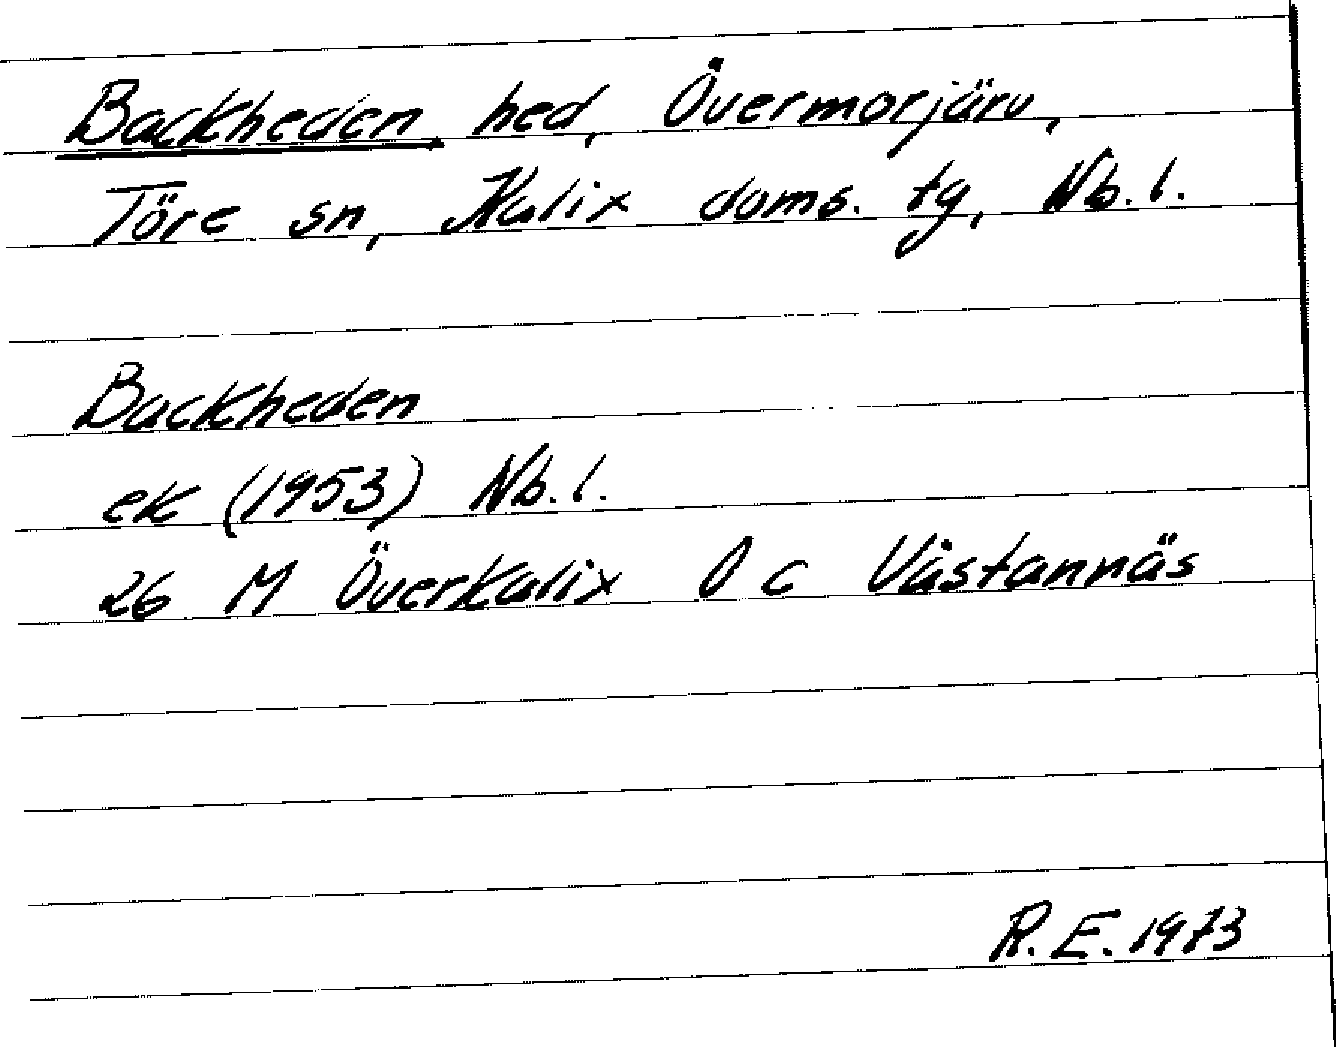 Backheden, hed, Övermorjärv,
Töre sn, Kalix doms. tg, Nb.l.
Backheden
ek (1953) Nb.l.
26 M Överkalix 0 c Västannäs
R.E. 1973